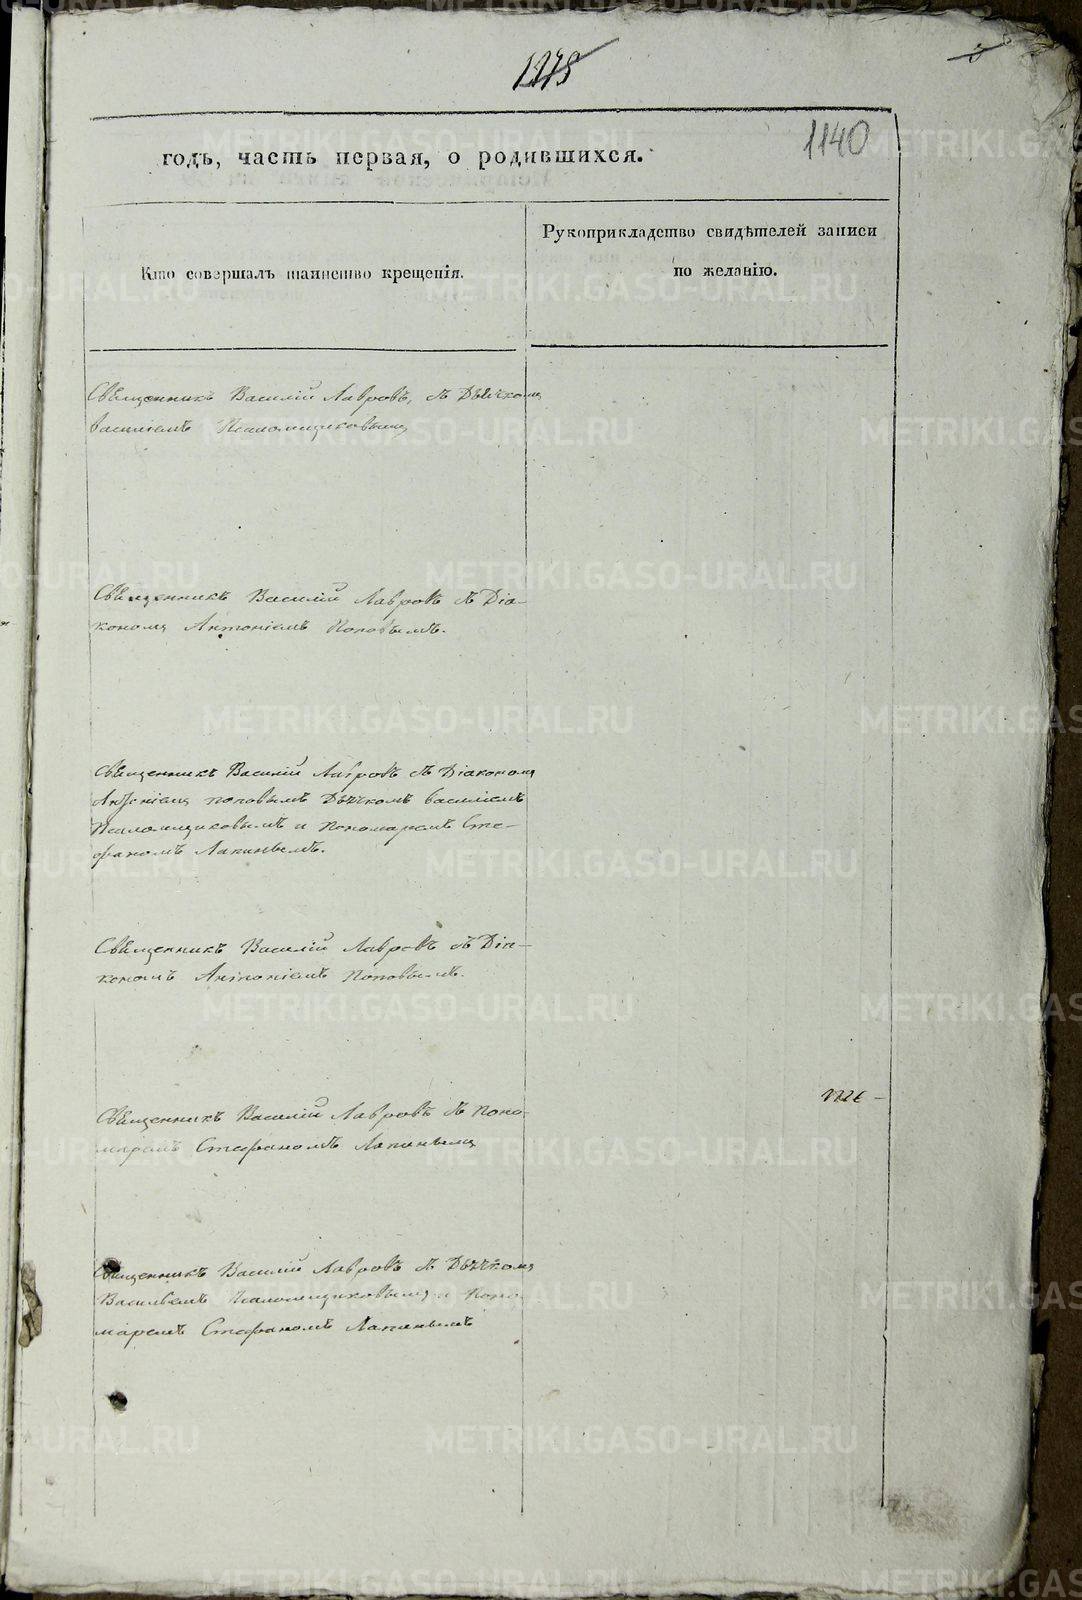 1278
1140
годъ, часть первая, о родившихся.
Кто совершалъ таинство крещенія.
Рукоприкладство свидѣтелей записи
по желанію.
Священникъ Василій Лавровъ, съ Дьячкомъ
Василіемъ Псаломщиковымъ
Священникъ Василій Лавровъ съ Діа-
кономъ Антоніемъ Поповымъ.
Священникъ Василій Лавровъ съ Діакономъ
Антоніемъ Поповымъ Дьячкомъ Василіемъ
Псаломщиковымъ и Пономаремъ Сте-
фаномъ Лапинымъ.
Священникъ Василій Лавровъ съ Діа-
кономъ Антоніемъ Поповымъ.
Священникъ Василій Лавровъ съ Поно-
маремъ Стефаномъ Лапинымъ
Священникъ Василій Лавровъ съ Дьячкомъ
Васильемъ Псаломщиковымъ и Поно-
маремъ Стефаномъ Лапинымъ
METRIKI.GASO-URAL.RU